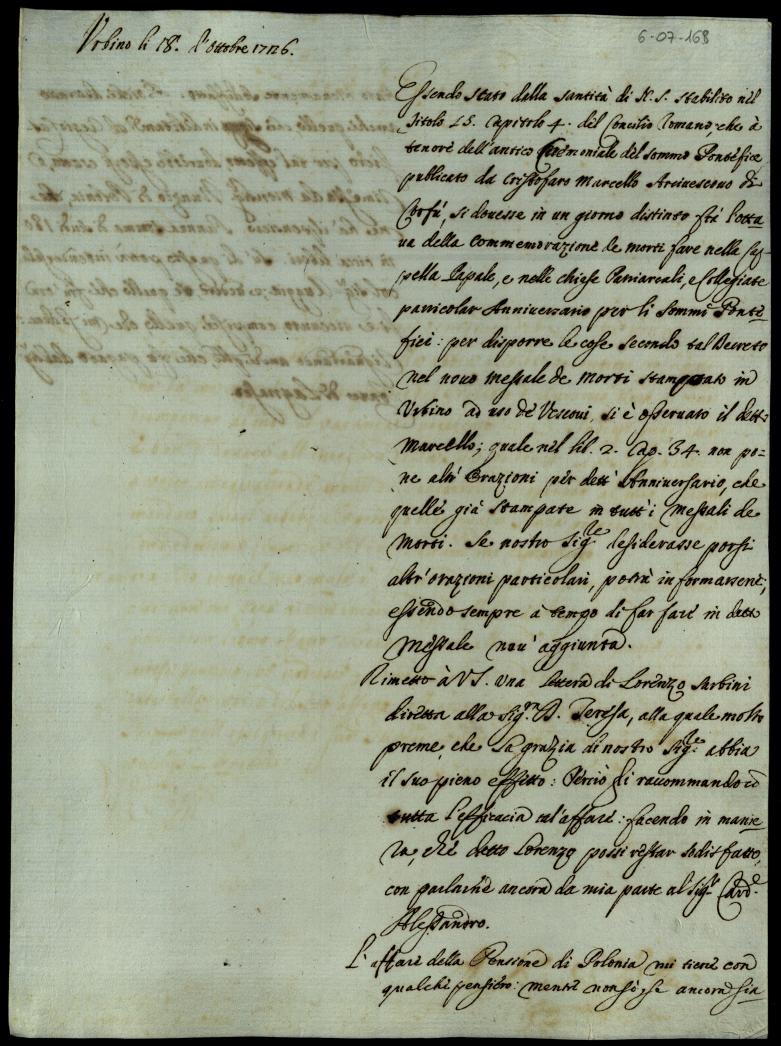 Urbino li 18. d'Ottobre 1726.
6-07-168
Essendo stato dalla Santità di N. S. stabilito nel
Titolo 15. Capitolo 4. del Concilio Romano, che à
tenore dell'antico Ceremoniale del Sommo Pontefice
publicato da Cristofaro Marcello Arcivescovo di
Corfù, si dovesse in un giorno distinto frà l'otta
va della Commemorazione de morti fare nella Cap-
pella Papale, e nelle chiese Patriarcali, e Collegiate
particolar Anniversario per li Sommi Ponte-
fici: per disporre le cose secondo tal Decreto
nel novo messale de morti stampato in
Urbino ad uso de Vescovi, si è osservato il dett:
Marcello; quale nel lib. 2. Cap. 34. non po=
ne altr'Orazioni per dett'Anniversario, che
quelle già stampate in tutt'i messali de
morti. Se nostro Sig.re desiderasse porsi
altr'orazioni particolari, potrà informarsene,
essendo sempre à tempo di far fare in dett:
Messale nov'aggiunta.
Rimetto à VS. una lettera di Lorenzo Sarbini
diretta alla Sig.ra D. Teresa, alla quale molto
preme, che la grazia di nostro Sig.re abbia
il suo pieno effetto: Perciò li raccommando cō
tutta l'efficacia tal'affare: facendo in manie-
ra, che detto Lorenzo possi restar sodisfatto,
con parlarne ancora da mia parte al Sig.r Card.e
Alessandro.
L'affare della Pensione di Polonia mi tiene con
qualche pensiero: mentre non sò, se ancora sia